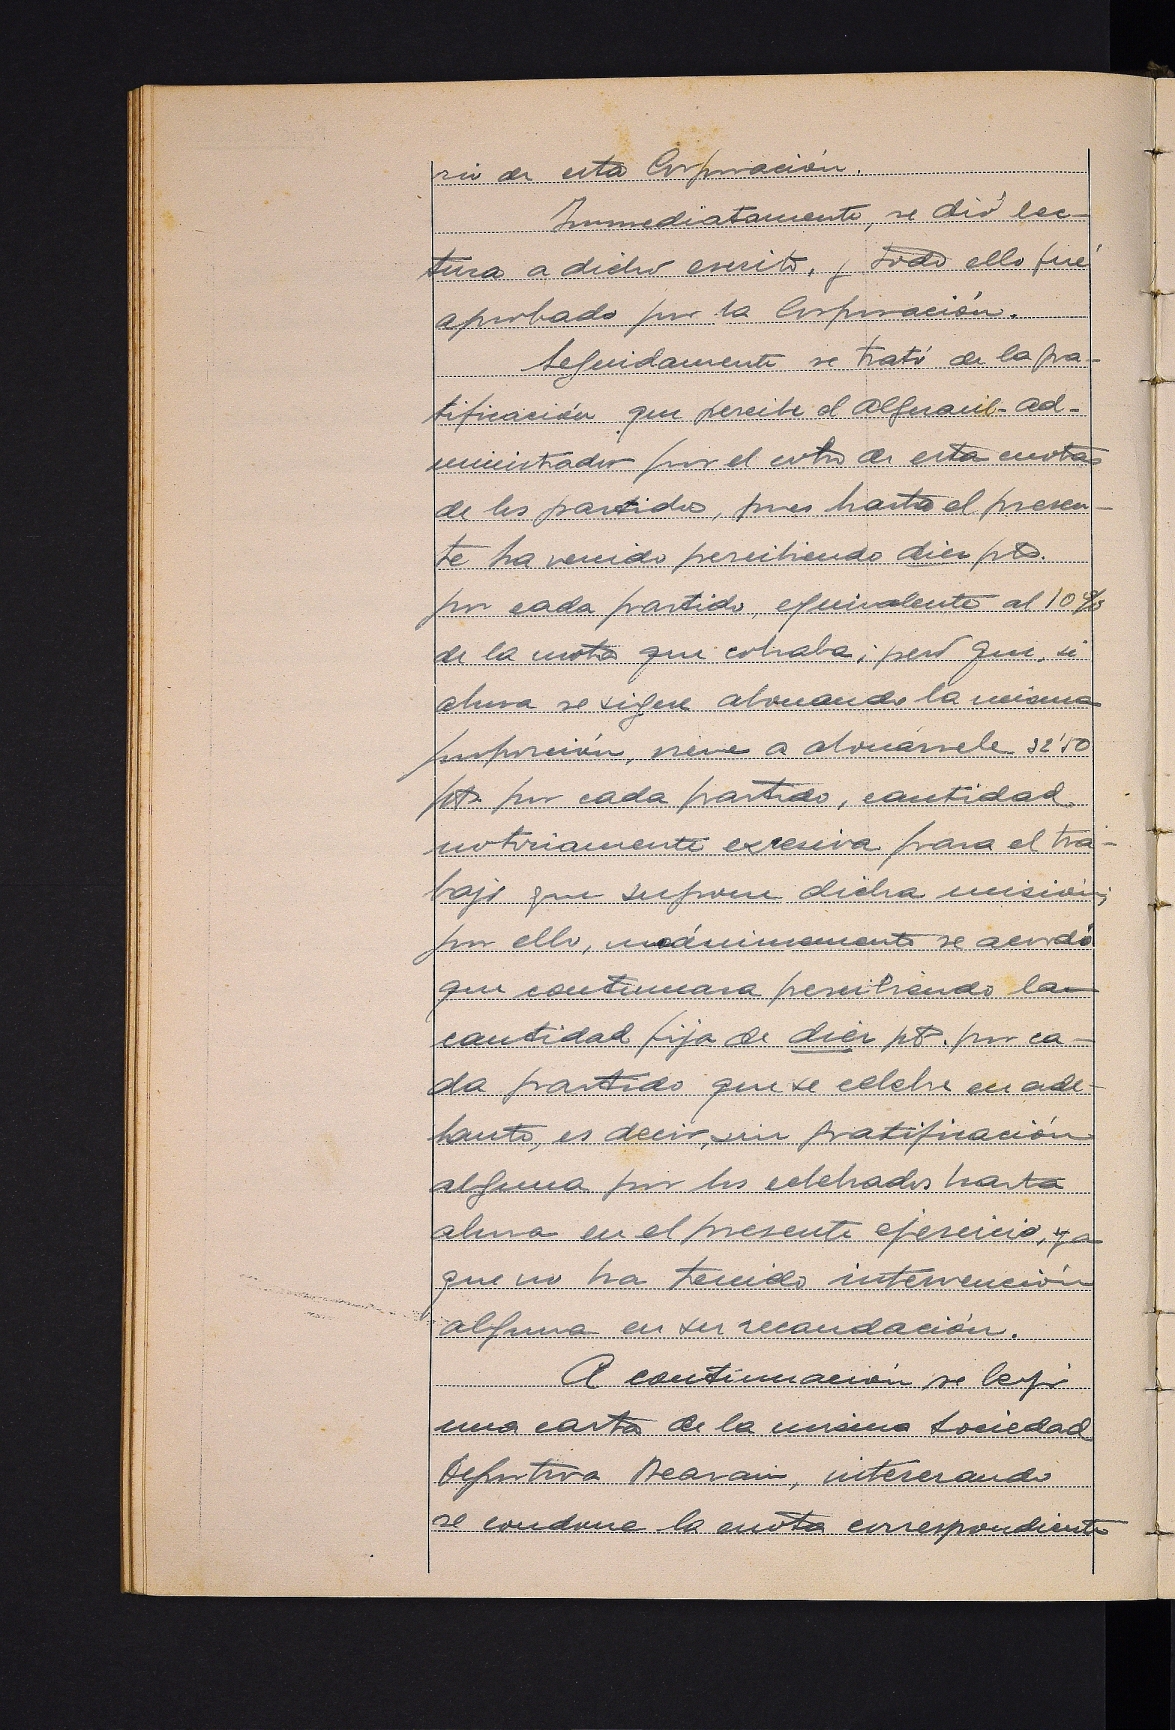 rio de esta Corporación.
Inmediatamente, se dió lec-
tura a dicho escrito, y todo ello fué
aprobado por la Corporación.
Seguidamente se trató de la gra-
tificación que percibe el Alguacil-ad-
ministrador por el cobro de esta cuotas
de los partidos, pues hasta el presen-
te ha venido percibiendo diez pts.
por cada partido, equivalente al 10%
de la cuota que cobraba; pero que, si
ahora se sigue abonando la misma
proporción, viene a abonársele 32'50
pts. por cada partido, cantidad
notoriamente excesiva para el tra-
bajo que supone dicha misión;
por ello, unánimemente se acordó
que continuara percibiendo la
cantidad fija de diez pts. por ca-
da partido que se celebre en ade-
lante, es decir, sin gratificación
alguna por los celebrados hasta
ahora en el presente ejercicio, ya
que no ha tenido intervención
alguna en su recaudación.
A continuación se leyó
una carta de la misma Sociedad
Deportiva Beasain, interesando
se condone la cuota correspondiente